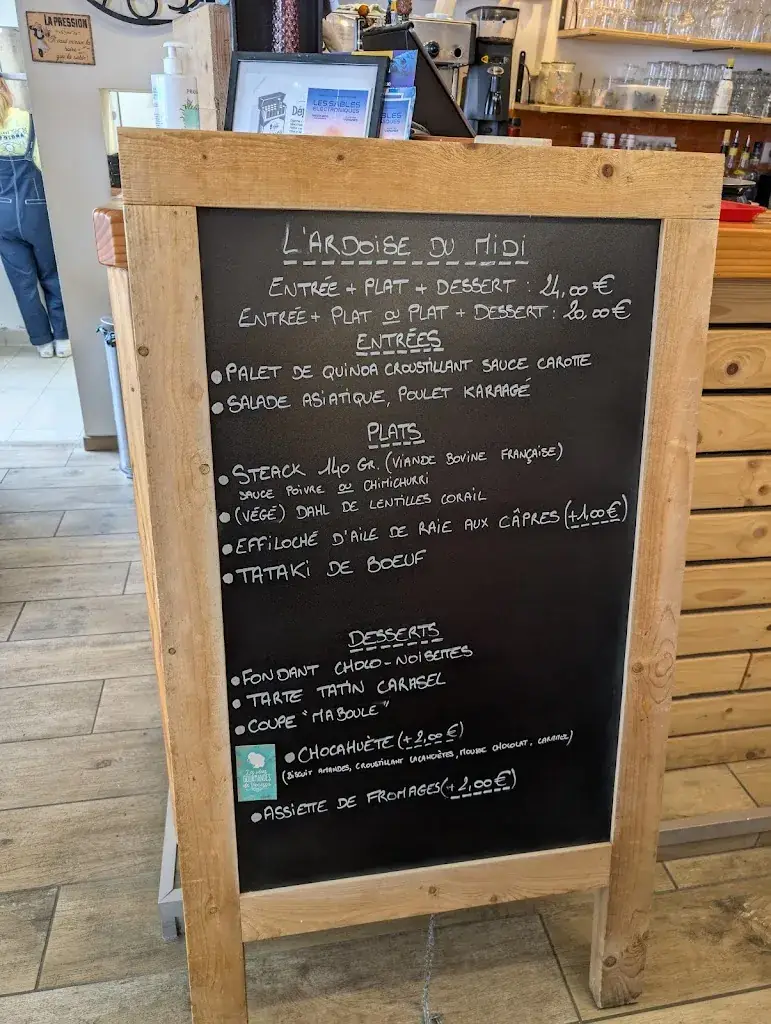 LA PRESSION
L'ARDOISE DU MIDI
ENTRÉE + PLAT + DESSERT : 24,00 €
ENTRÉE + PLAT OU PLAT + DESSERT : 20,00 €
ENTRÉES
• PALET DE QUINOA CROUSTILLANT SAUCE CAROTTE
• SALADE ASIATIQUE, POULET KARAAGÉ
PLATS
• STEACK 140 GR. (VIANDE BOVINE FRANÇAISE)
SAUCE POIVRE OU CHIMICHURRI
• (VÉGÉ) DAHL DE LENTILLES CORAIL
• EFFILOCHÉ D'AILE DE RAIE AUX CÂPRES (+1,00 €)
• TATAKI DE BOEUF
DESSERTS
• FONDANT CHOCO-NOISETTES
• TARTE TATIN CARASEL
• COUPE "MABOULE"
• CHOCAHUÈTE (+2,00 €)
(BISCUIT AMANDES, CROUSTILLANT CACAHUÈTES, MOUSSE CHOCOLAT, CARAMEL)
• ASSIETTE DE FROMAGES (+2,00 €)
LES SABLES